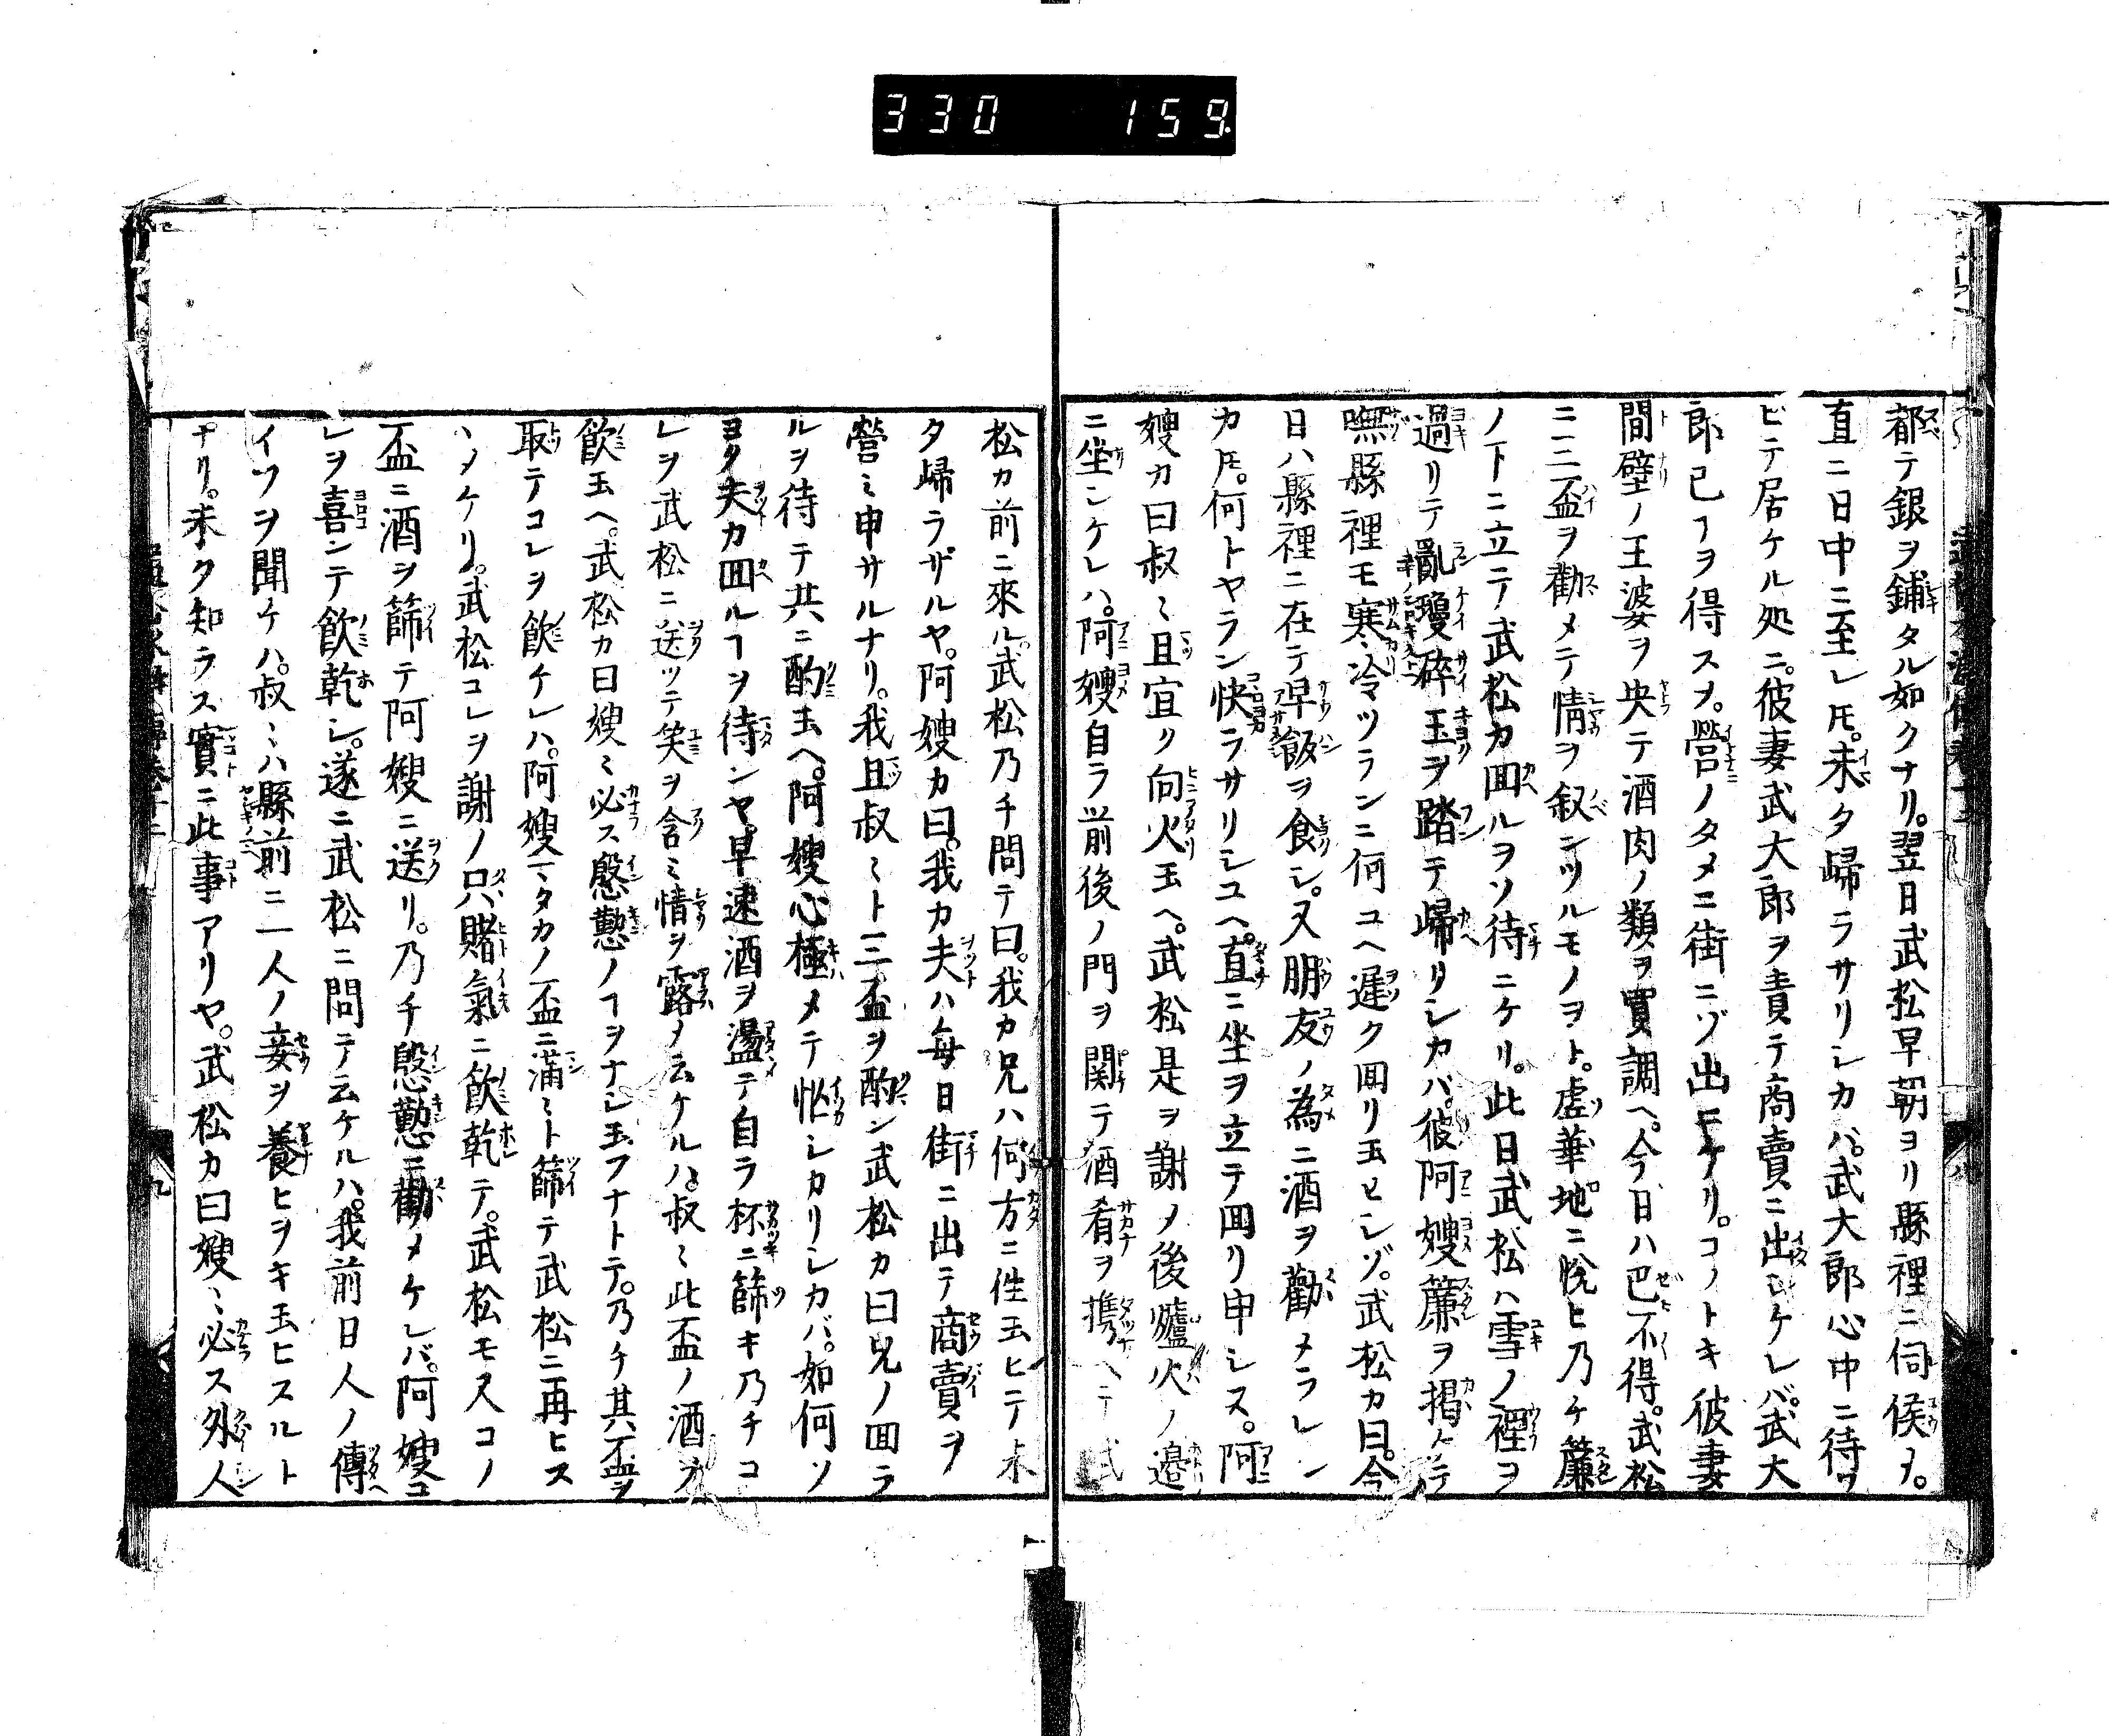 330 159
都テ銀ヲ鋪タル如クナリ。翌日武松早朝ヨリ縣裡ニ伺候ヲ。
直ニ日中ニ至レ𪜈。未タ歸ラサリシカバ。武大郎心中ニ待ヲ
ビテ居ケル処ニ。彼妻武大郎ヲ責テ商賣ニ出シケレバ。武大
郎已ヿヲ得スヲ。營ノタメニ街ニゾ出ニケリ。コノトキ彼妻
間壁ノ王婆ヲ央テ酒肉ノ類ヲ買調ヘ。今日ハ巴不得。武松
ニ二三盃ヲ勸メテ情ヲ叙シツルモノヲト。虚華地ニ悅ヒ乃チ簾
ノ下ニ立テ武松カ囬ルヲソ待ニケリ。此日武松ハ雪ノ裡ヲ
過リテ亂瓊碎玉ヲ踏テ歸リシカバ。彼阿嫂簾ヲ揭ケテ
嘸縣裡モ寒冷マツランニ何ユヘ遲ク囬リ玉ヒシゾ。武松カ曰。今
日ハ縣裡ニ在テ早飯ヲ食シ。又朋友ノ為ニ酒ヲ勸メラレン
カ𪜈。何トヤラン快ラサリシユヘ。直ニ坐ヲ立テ囬リ申シヌ。阿
嫂カ曰叔〻且宜ク向火玉ヘ。武松是ヲ謝メ後爐火ノ邉
ニ坐シケレハ。阿嫂自ラ前後ノ門ヲ関テ酒肴ヲ携ヘテ武
松カ前ニ來ル。武松乃チ問テ曰。我カ兄ハ何方ニ徃玉ヒテ未
タ歸ラザルヤ。阿嫂カ曰。我カ夫ハ每日街ニ出テ商賣ヲ
營ミ申サルナリ。我且叔〻ト三盃ヲ酌ン武松カ曰兄ノ囬ラ
ルヲ待テ共ニ酌玉ヘ。阿嫂心極メテ忙シカリシカバ。如何ソ
ヨク夫カ囬ルヿヲ待ンヤ。早速酒ヲ盪テ自ラ杯ニ篩キ乃チコ
レヲ武松ニ送ツテ笑ヲ含ミ情ヲ露メ云ケルハ。叔〻此盃ノ酒ヲ
飮玉ヘ。武松カ曰嫂〻必ス慇懃ノヿヲナシ玉フナトテ。乃チ其盃ヲ
取テコレヲ飮ケレハ。阿嫂マタカノ盃ニ滿〻ト篩テ武松ニ再ヒス
ヽメケリ。武松コレヲ謝ノ只賭氣ニ飮乾テ。武松モ又コノ
盃ニ酒ヲ篩テ阿嫂ニ送リ。乃チ慇懃ニ勸メケレバ。阿嫂コ
レヲ喜ンテ飮乾シ。遂ニ武松ニ問テ云ケルハ。我前日人ノ傳
イフヲ聞ケハ。叔〻ハ縣前ニ一人ノ妾ヲ養ヒヲキ玉ヒヌルト
ナリ。未タ知ラス實ニ此事アリヤ。武松カ曰嫂〻必ス外人